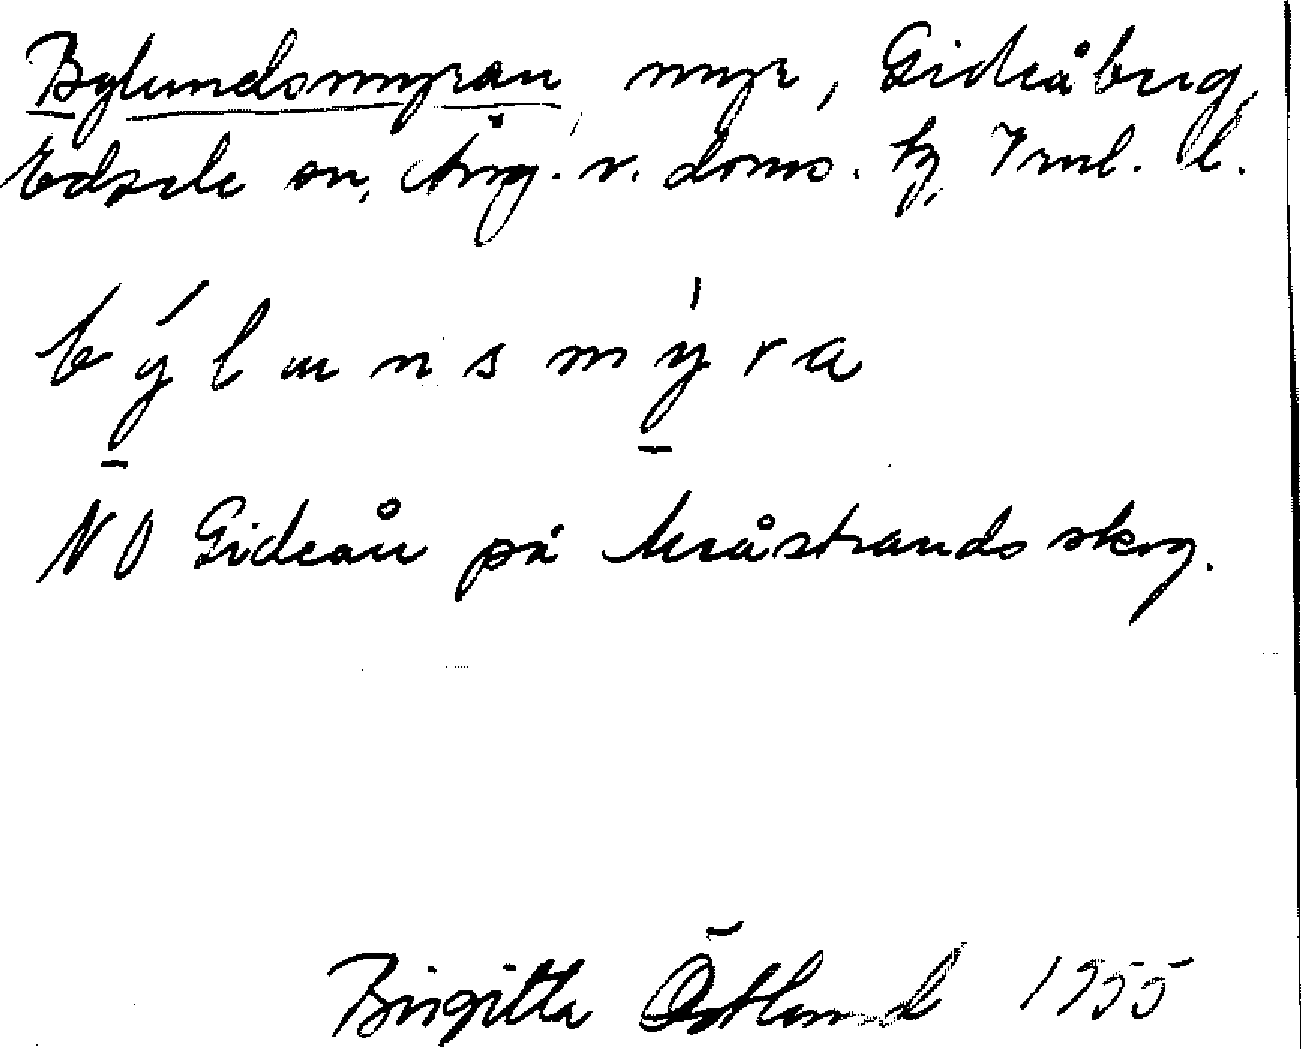 Bylundsmyran, myr, Gideåberg,
Edsele sn, Ång. v. doms. tg, Vnl. l.
býlunsmỳra
NO Gideån på Meåstrands skog.
Birgitta Östlund 1955